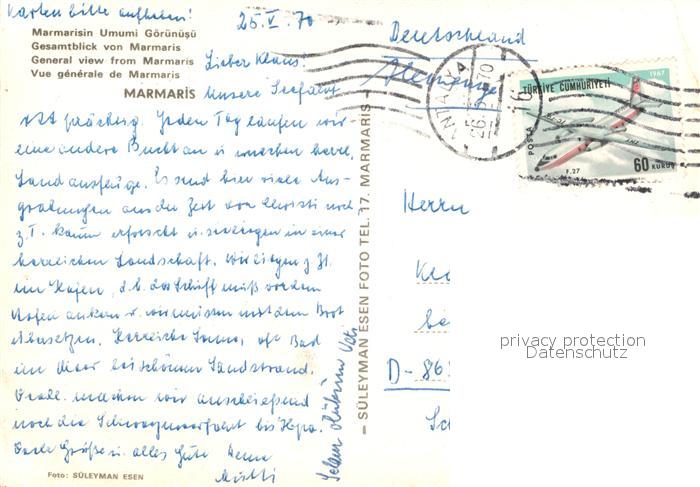 Karten bitte aufheben!
25.V.70
Marmarisin Umumi Görünüşü
Gesamtblick von Marmaris
General view from Marmaris
Vue générale de Marmaris
MARMARİS
Lieber Klaus!
Unsere Seefahrt
ist prächtig. Jeden Tag laufen wir
eine andere Bucht an u. machen herrl.
Landausflüge. Es sind hier viele Aus-
grabungen aus der Zeit vor Christi noch
z.T. kaum erforscht u. sie liegen in einer
herrlichen Landschaft. Wir liegen z. Zt.
im Hafen, d.h. das Schiff muß vor dem
Hafen ankern u. wir müssen mit dem Boot
übersetzen. Herrliche Sonne, oft Bad
im Meer bei schönem Sandstrand.
machen wir anschließend
noch die Schwarzmeerfahrt bis
Viele Grüße u. alles Gute Deine
Mutti
Foto: SÜLEYMAN ESEN
Vati
— SÜLEYMAN ESEN FOTO TEL. 17. MARMARIS —
Deutschland
ANTALYA
26.5.70
16
1967
TÜRKİYE CUMHURİYETİ
POSTA
F.27
60 KURUŞ
Herrn
D-86
privacy protection
Datenschutz